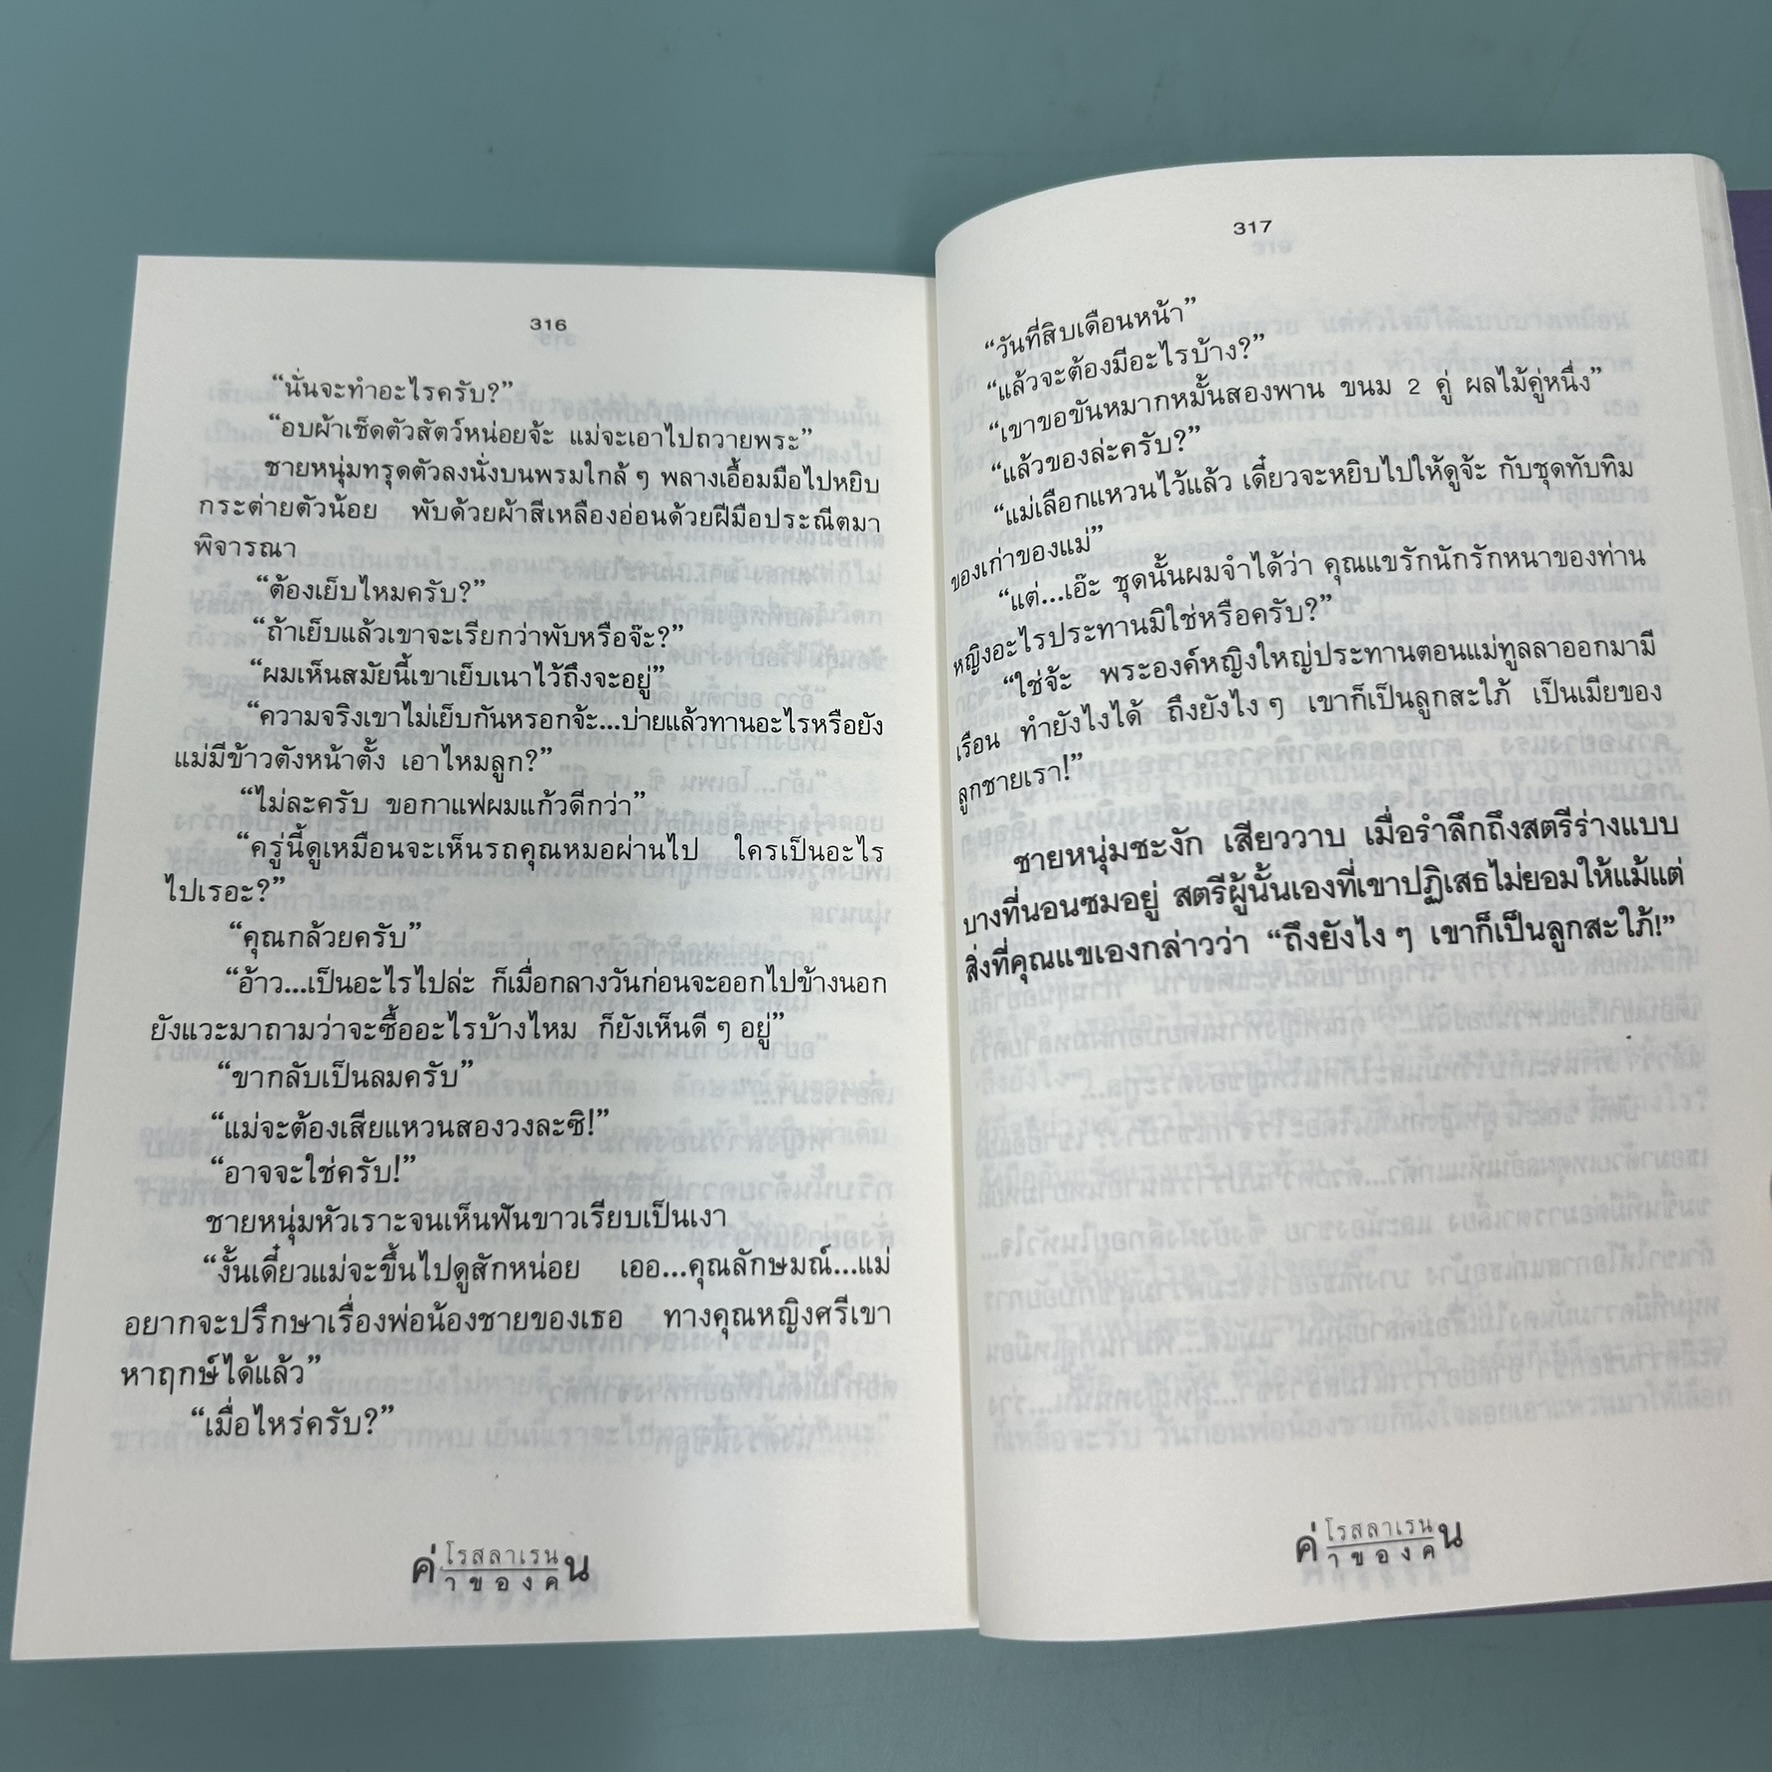 316
“นั่นจะทำอะไรครับ?”
“อบผ้าเช็ดตัวสัตว์หน่อยจ้ะ แม่จะเอาไปถวายพระ”
ชายหนุ่มทรุดตัวลงนั่งบนพรมใกล้ๆ พลางเอื้อมมือไปหยิบ
กระต่ายตัวน้อย พับด้วยผ้าสีเหลืองอ่อนด้วยฝีมือประณีตมา
พิจารณา
“ต้องเย็บไหมครับ?”
“ถ้าเย็บแล้วเขาจะเรียกว่าพับหรือจ๊ะ?”
“ผมเห็นสมัยนี้เขาเย็บเนาไว้ถึงจะอยู่”
“ความจริงเขาไม่เย็บกันหรอกจ้ะ...บ่ายแล้วทานอะไรหรือยัง
แม่มีข้าวตังหน้าตั้ง เอาไหมลูก?”
“ไม่ละครับ ขอกาแฟผมแก้วดีกว่า”
“ครู่นี้ดูเหมือนจะเห็นรถคุณหมอผ่านไป ใครเป็นอะไร
ไปเรอะ?”
“คุณกล้วยครับ”
“อ้าว...เป็นอะไรไปล่ะ ก็เมื่อกลางวันก่อนจะออกไปข้างนอก
ยังแวะมาถามว่าจะซื้ออะไรบ้างไหม ก็ยังเห็นดีๆ อยู่”
“ขากลับเป็นลมครับ”
“แม่จะต้องเสียแหวนสองวงละซิ!”
“อาจจะใช่ครับ!”
ชายหนุ่มหัวเราะจนเห็นฟันขาวเรียบเป็นเงา
“งั้นเดี๋ยวแม่จะขึ้นไปดูสักหน่อย เออ...คุณลักษมณ์...แม่
อยากจะปรึกษาเรื่องพ่อน้องชายของเธอ ทางคุณหญิงศรีเขา
หาฤกษ์ได้แล้ว”
“เมื่อไหร่ครับ?”
ค่าของคน
โรสลาเรน
317
“วันที่สิบเดือนหน้า”
“แล้วจะต้องมีอะไรบ้าง?”
“เขาขอขันหมากหมั้นสองพาน ขนม 2 คู่ ผลไม้คู่หนึ่ง”
“แล้วของล่ะครับ?”
“แม่เลือกแหวนไว้แล้ว เดี๋ยวจะหยิบไปให้ดูจ้ะ กับชุดทับทิม
ของเก่าของแม่”
“แต่...เอ๊ะ ชุดนั้นผมจำได้ว่า คุณแขรักนักรักหนาของท่าน
หญิงอะไรประทานมิใช่หรือครับ?”
“ใช่จ้ะ พระองค์หญิงใหญ่ประทานตอนแม่ทูลลาออกมามี
เรือน ทำยังไงได้ ถึงยังไงๆ เขาก็เป็นลูกสะใภ้ เป็นเมียของ
ลูกชายเรา!”
ชายหนุ่มชะงัก เสียววาบ เมื่อรำลึกถึงสตรีร่างแบบ
บางที่นอนซมอยู่ สตรีผู้นั้นเองที่เขาปฏิเสธไม่ยอมให้แม้แต่
สิ่งที่คุณแขเองกล่าวว่า “ถึงยังไงๆ เขาก็เป็นลูกสะใภ้!”
ค่าของคน
โรสลาเรน